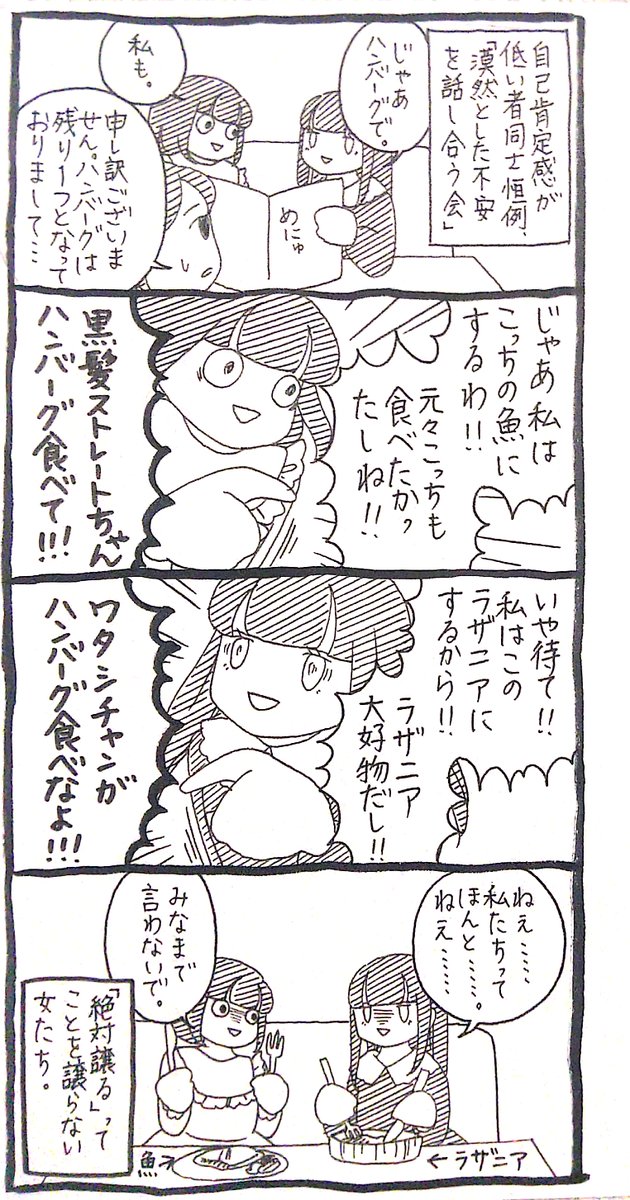 自己肯定感が
低い者同士恒例、
「漠然とした不安
を話し合う会」
じゃあ
ハンバーグで。
めにゅ
私も。
申し訳ございま
せん。ハンバーグは
残り1つとなって
おりまして…
じゃあ私は
こっちの魚に
するわ!!
元々こっちも
食べたかっ
たしね!!
黒髪ストレートちゃん
ハンバーグ食べて!!!
いや待て!!
私はこの
ラザニアに
するから!!
ラザニア
大好物だし!!
ワタシチャンが
ハンバーグ食べなよ!!!
ねぇ……
私たちって
ほんと……。
ねえ……
みなまで
言わないで。
「絶対譲る」って
ことを譲らない
女たち。
魚→
←ラザニア